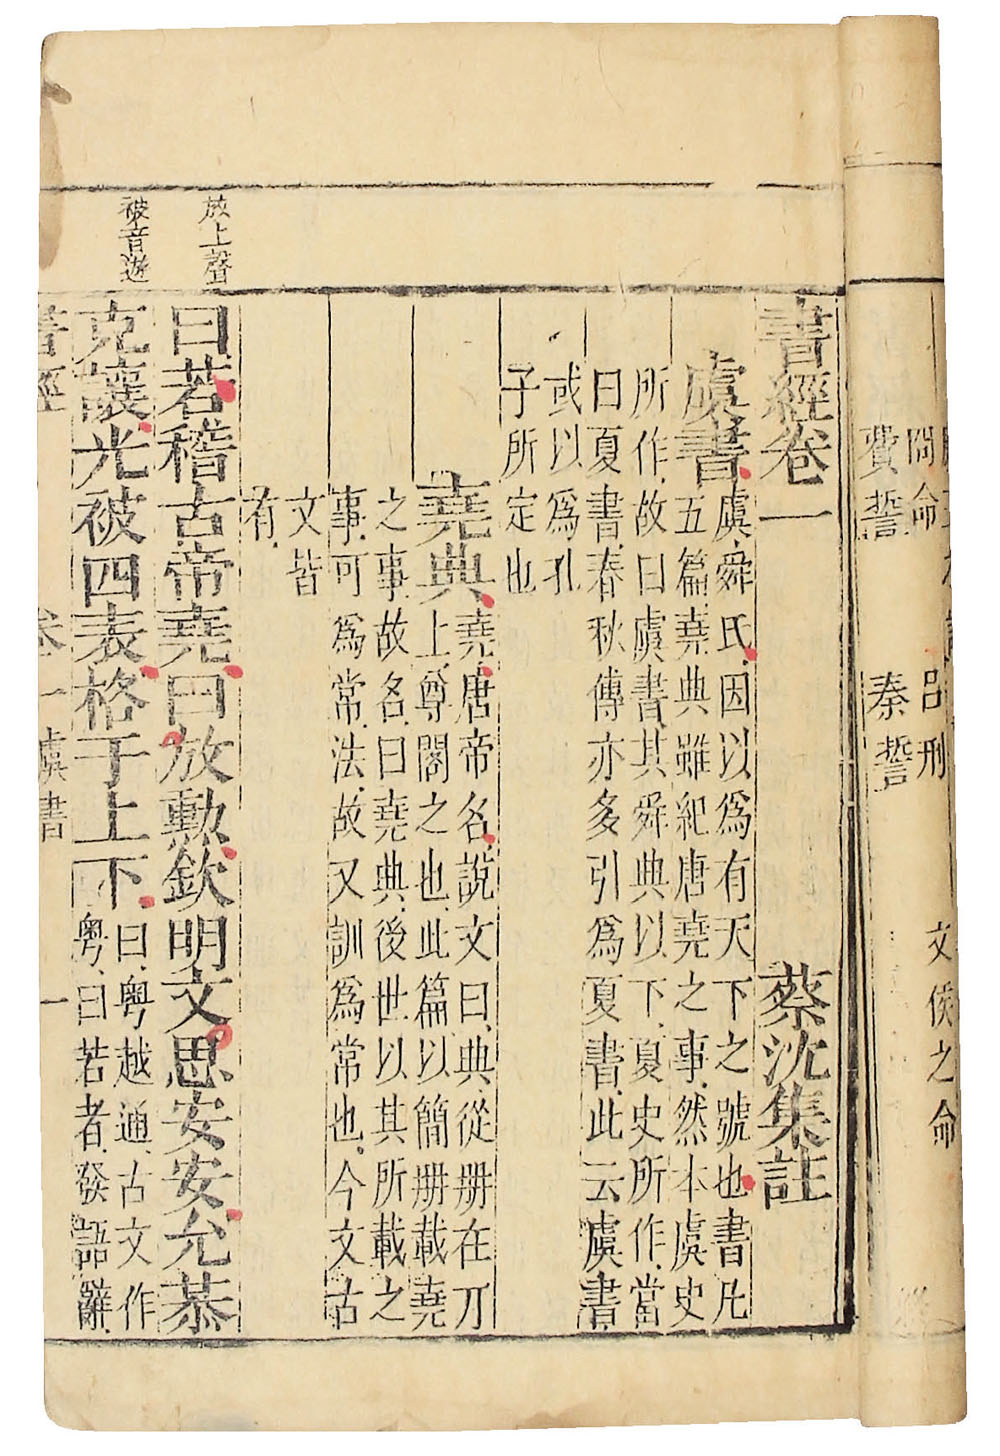 冏命
呂刑
文侯之命
費誓
秦誓
書經卷一
蔡沈集註
虞書
虞舜氏因以爲有天下之號也書凡
五篇堯典雖紀唐堯之事然本虞史
所作故曰虞書其舜典以下夏史所作當
曰夏書春秋傳亦多引爲夏書此云虞書
或以爲孔
子所定也
堯典
堯唐帝名說文曰典從册在丌
上尊閣之也此篇以簡册載堯
之事故名曰堯典後世以其所載之
事可爲常法故又訓爲常也今文古
文皆
有
放上聲
曰若稽古帝堯曰放勳欽明文思安安允恭
被音避
克讓光被四表格于上下
曰粤越通古文作
粤曰若者發語辭
書經
卷一虞書
一